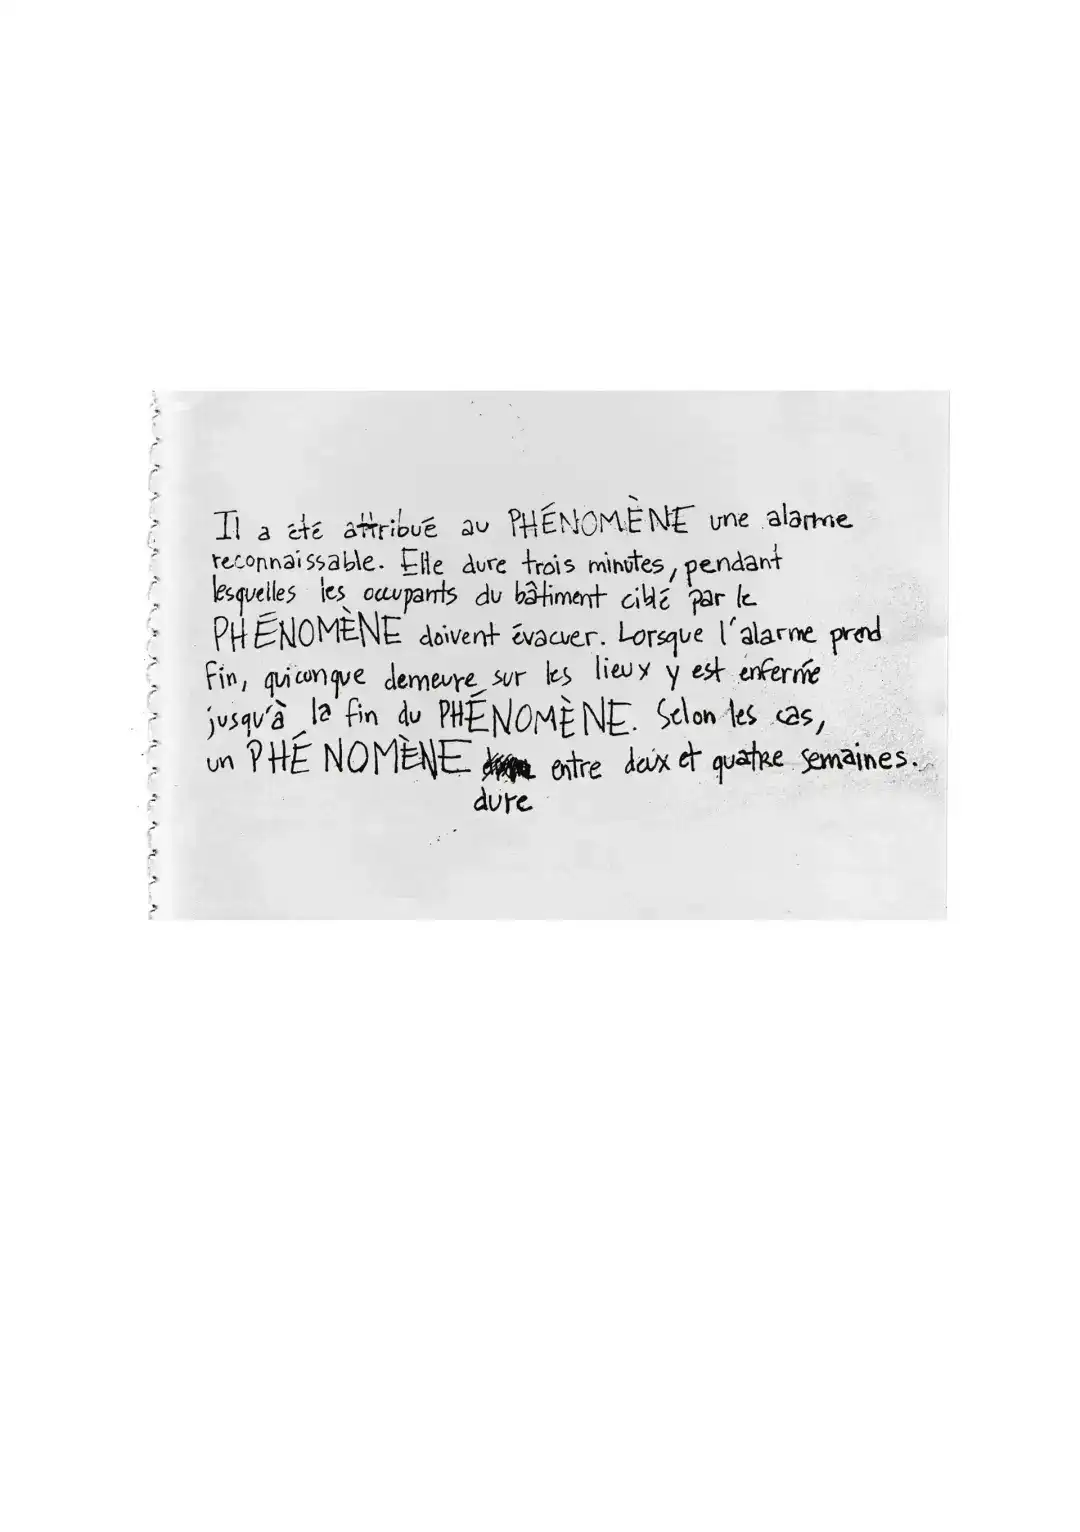 Il a été attribué au PHÉNOMÈNE une alarme
reconnaissable. Elle dure trois minutes, pendant
lesquelles les occupants du bâtiment ciblé par le
PHÉNOMÈNE doivent évacuer. Lorsque l'alarme prend
fin, quiconque demeure sur les lieux y est enfermé
jusqu'à la fin du PHÉNOMÈNE. Selon les cas,
un PHÉNOMÈNE entre deux et quatre semaines.
dure